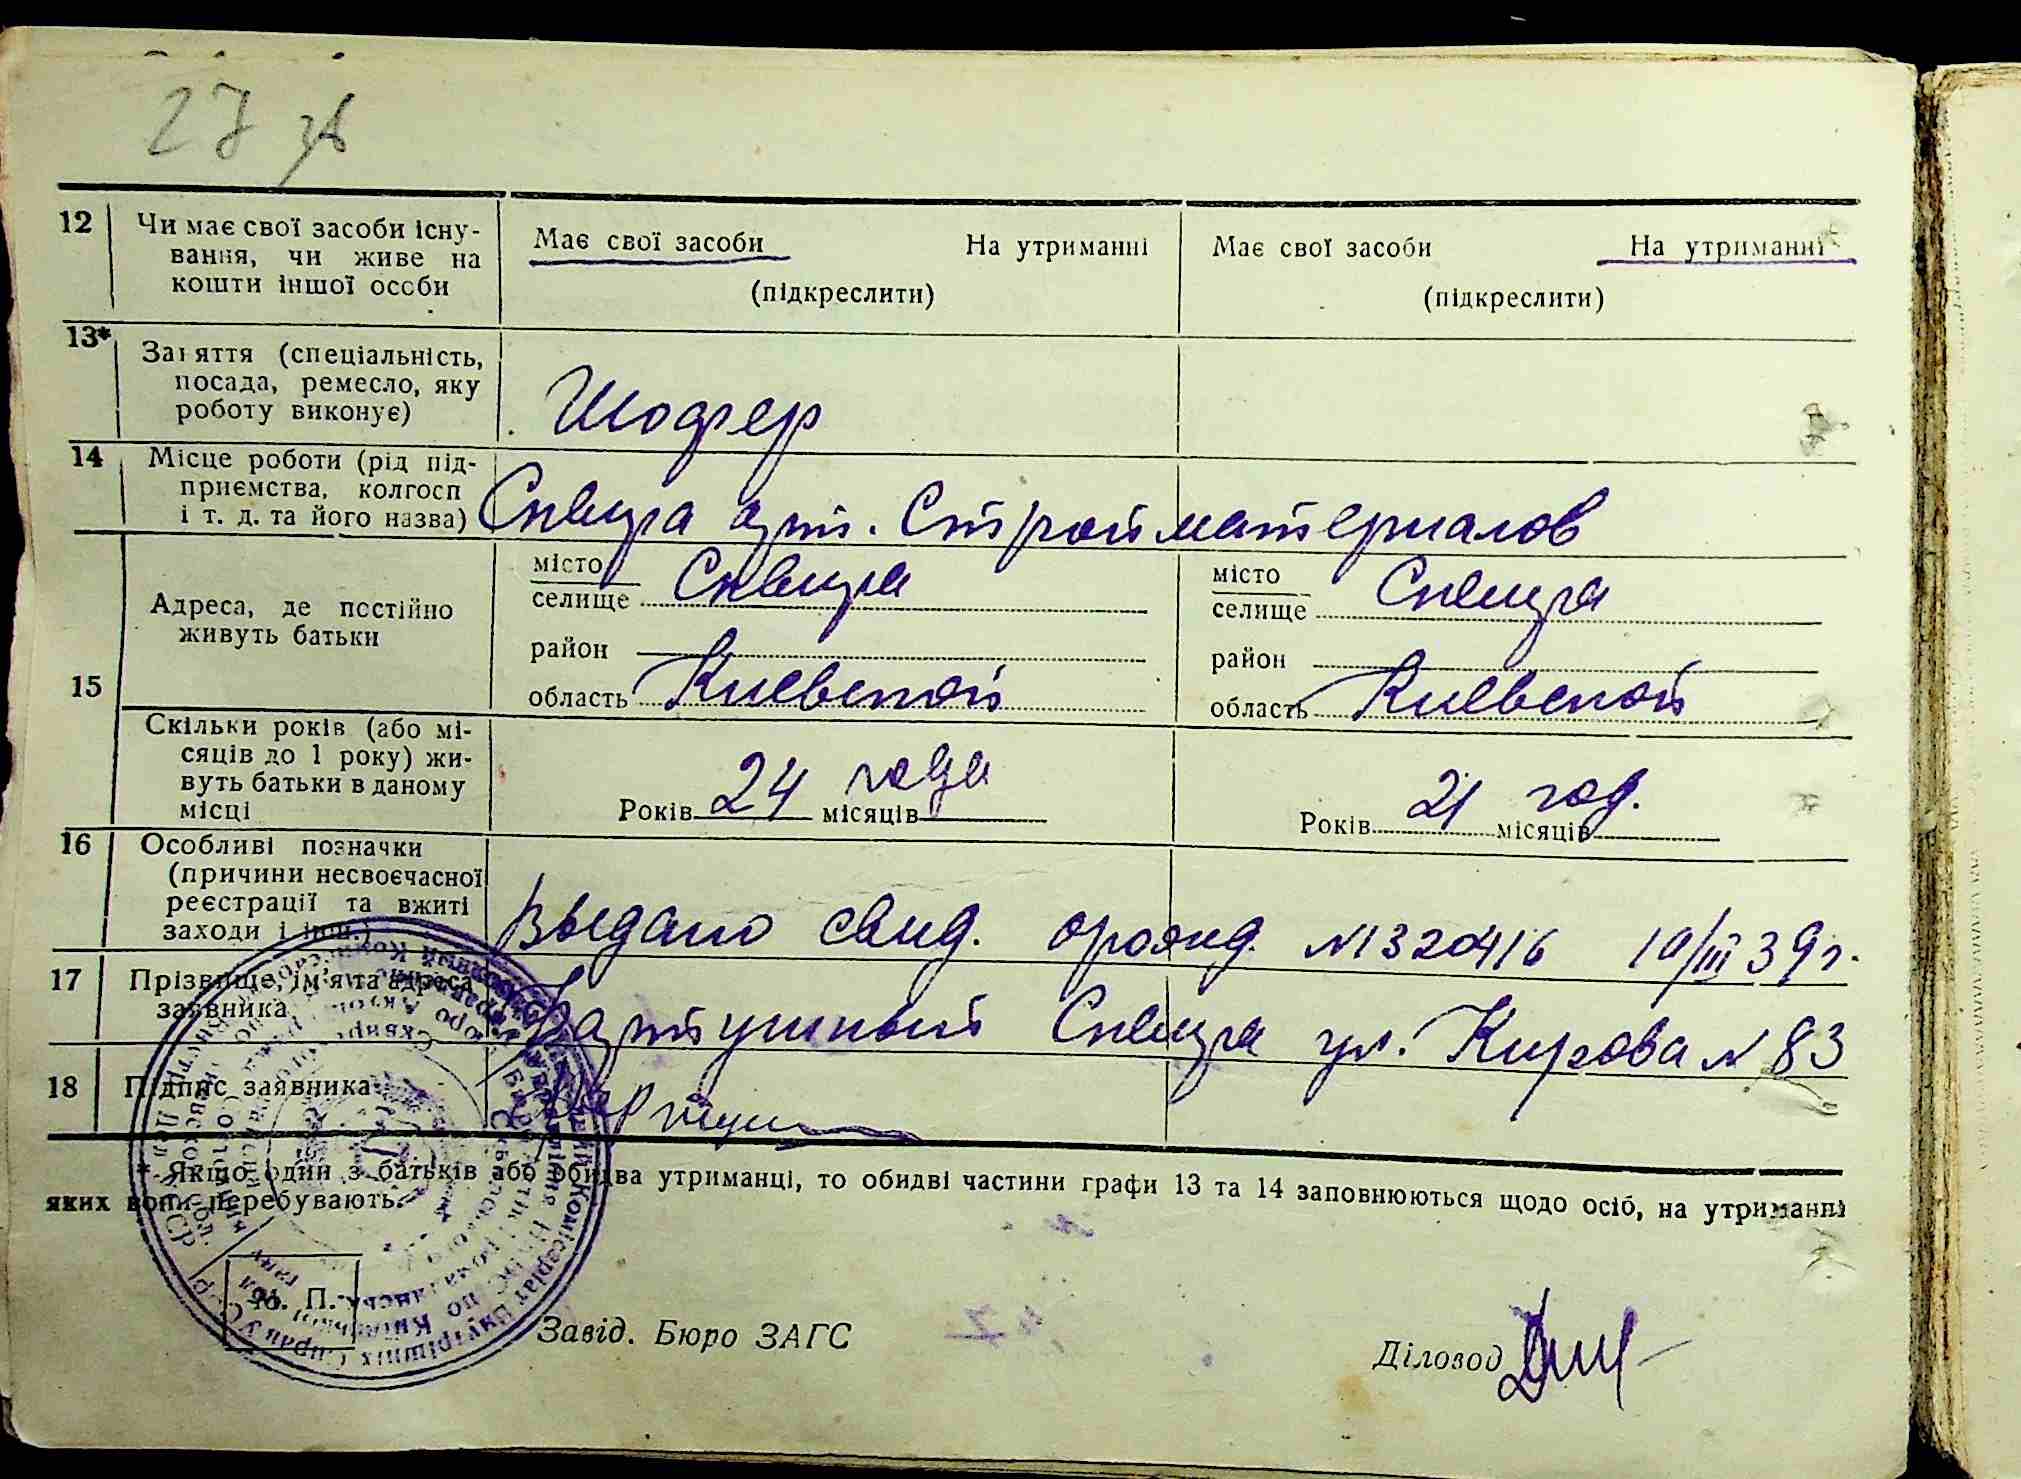 27 зв
12 Чи має свої засоби існу-
вання, чи живе на
кошти іншої особи
Має свої засоби На утриманні
(підкреслити)
Має свої засоби На утриманні
(підкреслити)
13* Заняття (спеціальність,
посада, ремесло, яку
роботу виконує)
Шофер
14 Місце роботи (рід під-
приємства, колгосп
і т. д. та його назва)
Сквира арт. Стройматериалов
15 Адреса, де постійно
живуть батьки
місто
селище Сквира
район
область Киевской
місто
селище Сквира
район
область Киевской
Скільки років (або мі-
сяців до 1 року) жи-
вуть батьки в даному
місці
Років 24 года місяців
Років 21 год. місяців
16 Особливі позначки
(причини несвоєчасної
реєстрації та вжиті
заходи і інш.)
Выдано свид. о рожд. N 132041б 10/III 39 г.
17 Прізвище, ім'я та адреса
заявника
Сквира ул. Кирова N 83
18 Підпис заявника
* Якщо один з батьків або обидва утриманці, то обидві частини графи 13 та 14 заповнюються щодо осіб, на утриманні
яких вони перебувають.
М. П.
Завід. Бюро ЗАГС
Діловод